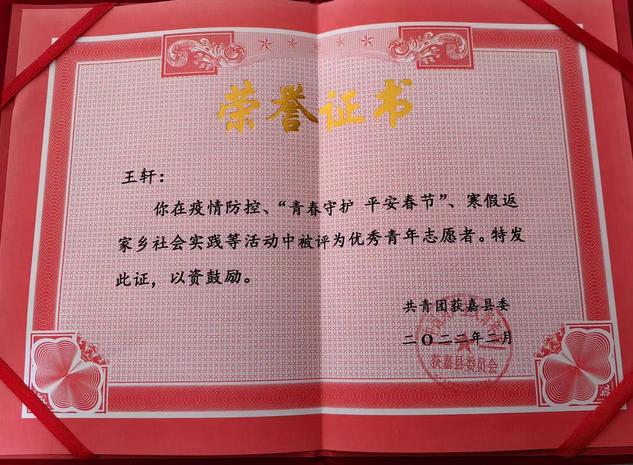 荣誉证书
王轩：
你在疫情防控、“青春守护 平安春节”、寒假返
家乡社会实践等活动中被评为优秀青年志愿者。特发
此证，以资鼓励。
共青团获嘉县委
二〇二二年二月
获嘉县委员会